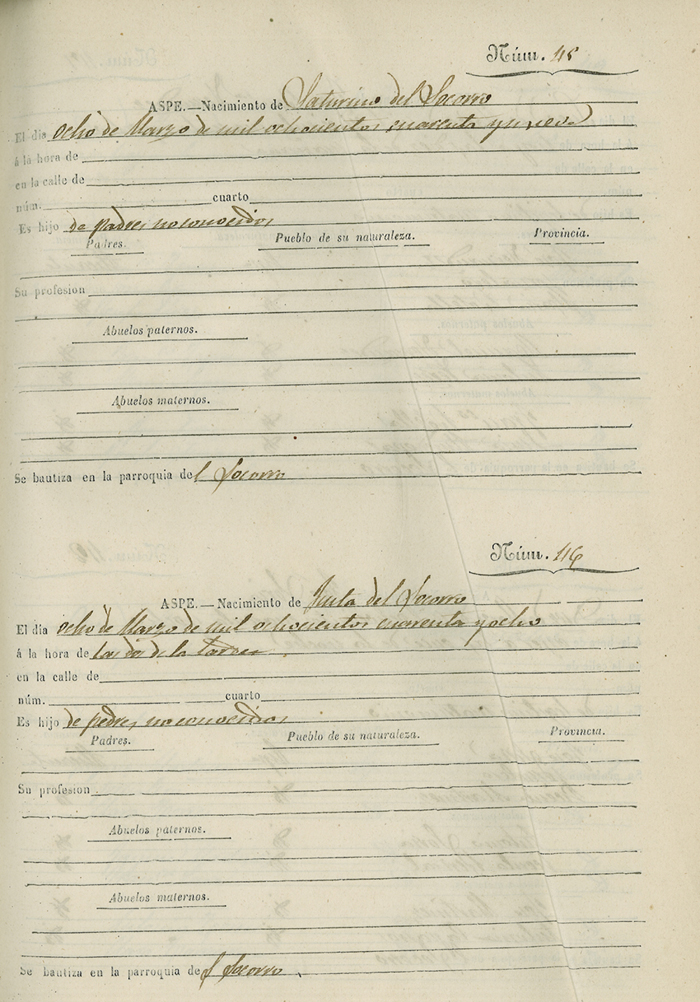 Núm. 45
ASPE.—Nacimiento de Saturnino del Socorro
El dia ocho de Marzo de mil ochocientos cuarenta y nueve
á la hora de
en la calle de
núm. cuarto
Es hijo de padres no conocidos
Padres. Pueblo de su naturaleza. Provincia.
Su profesion
Abuelos paternos.
Abuelos maternos.
Se bautiza en la parroquia del Socorro
Núm. 46
ASPE.—Nacimiento de Justa del Socorro
El dia ocho de Marzo de mil ochocientos cuarenta y ocho
á la hora de las dos de la tarde
en la calle de
núm. cuarto
Es hijo de padres no conocidos
Padres. Pueblo de su naturaleza. Provincia.
Su profesion
Abuelos paternos.
Abuelos maternos.
Se bautiza en la parroquia del Socorro